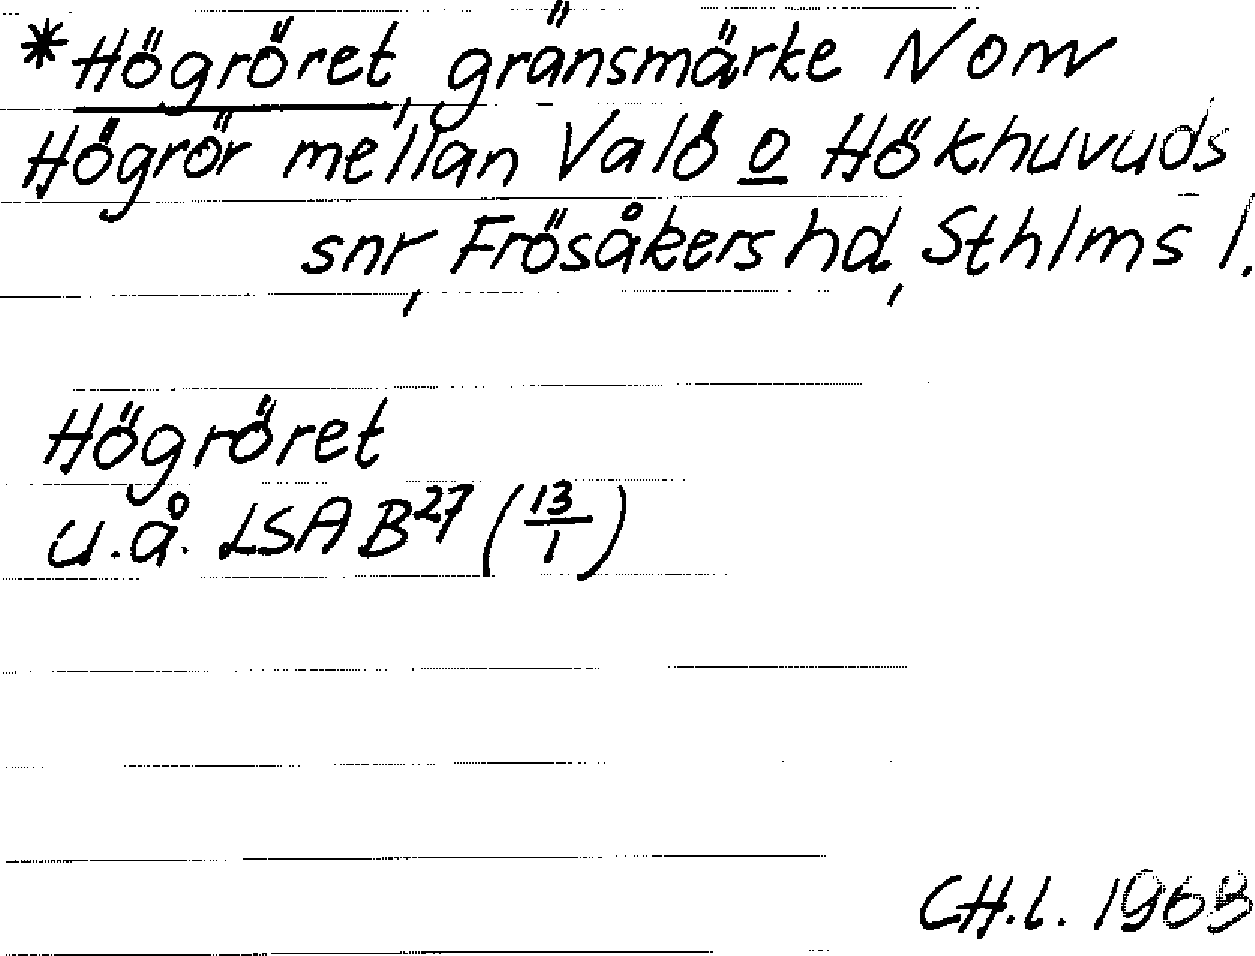 *Högröret, gränsmärke N om
Högrör mellan Valö o Hökhuvuds
snr, Frösåkers hd, Sthlms l.
Högröret
u.å. LSA B27 (13/1)
CH.l. 1963